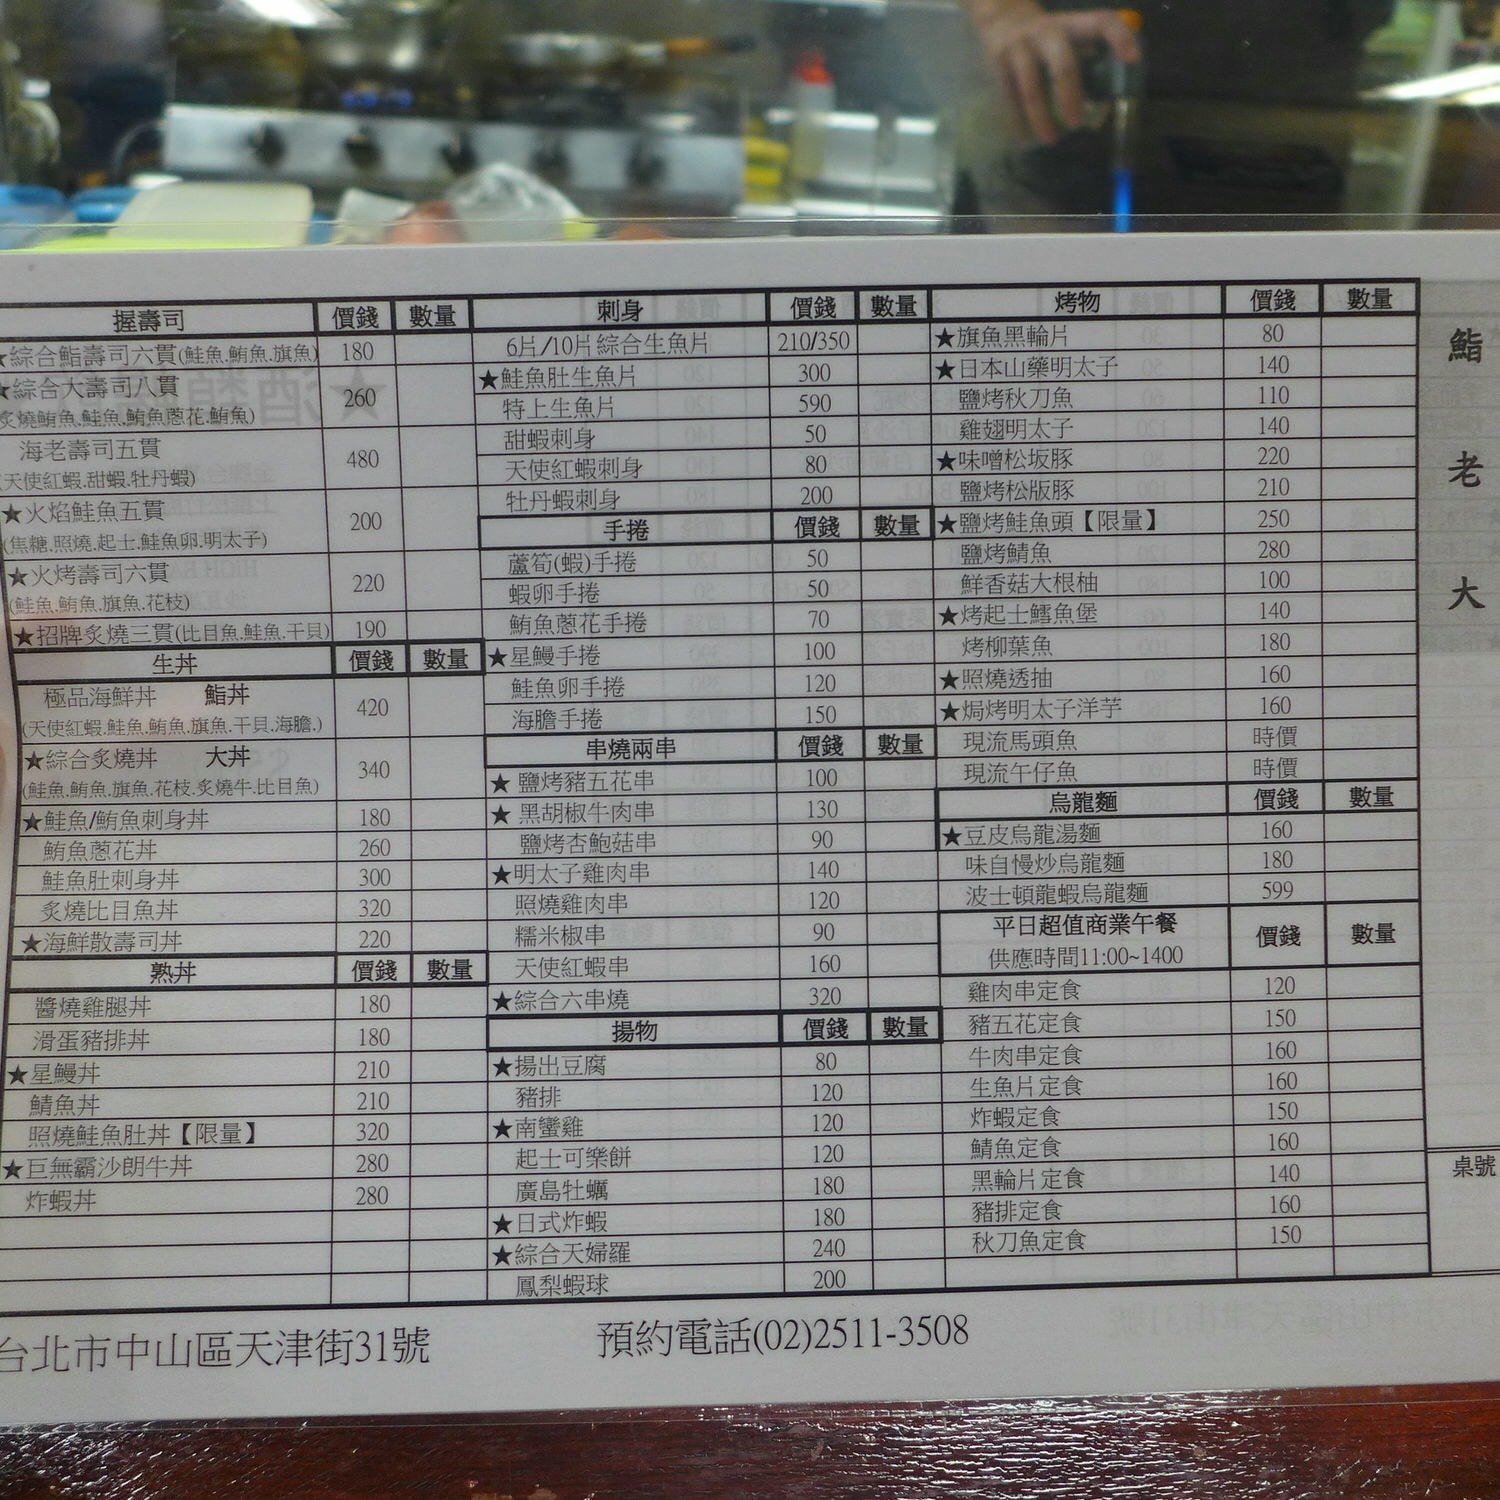 握壽司 價錢 數量
★綜合鮨壽司六貫(鮭魚.鮪魚.旗魚) 180
★綜合大壽司八貫 260
炙燒鮪魚.鮭魚.鮪魚蔥花.鮪魚)
海老壽司五貫 480
(天使紅蝦.甜蝦.牡丹蝦)
★火焰鮭魚五貫 200
(焦糖.照燒.起士.鮭魚卵.明太子)
★火烤壽司六貫 220
(鮭魚.鮪魚.旗魚.花枝)
★招牌炙燒三貫(比目魚.鮭魚.干貝) 190
生丼 價錢 數量
極品海鮮丼 鮨丼 420
(天使紅蝦.鮭魚.鮪魚.旗魚.干貝.海膽.)
★綜合炙燒丼 大丼 340
(鮭魚.鮪魚.旗魚.花枝.炙燒牛.比目魚)
★鮭魚/鮪魚刺身丼 180
鮪魚蔥花丼 260
鮭魚肚刺身丼 300
炙燒比目魚丼 320
★海鮮散壽司丼 220
熟丼 價錢 數量
醬燒雞腿丼 180
滑蛋豬排丼 180
★星鰻丼 210
鯖魚丼 210
照燒鮭魚肚丼【限量】 320
★巨無霸沙朗牛丼 280
炸蝦丼 280
刺身 價錢 數量
6片/10片綜合生魚片 210/350
★鮭魚肚生魚片 300
特上生魚片 590
甜蝦刺身 50
天使紅蝦刺身 80
牡丹蝦刺身 200
手捲 價錢 數量
蘆筍(蝦)手捲 50
蝦卵手捲 50
鮪魚蔥花手捲 70
★星鰻手捲 100
鮭魚卵手捲 120
海膽手捲 150
串燒兩串 價錢 數量
★鹽烤豬五花串 100
★黑胡椒牛肉串 130
鹽烤杏鮑菇串 90
★明太子雞肉串 140
照燒雞肉串 120
糯米椒串 90
天使紅蝦串 160
★綜合六串燒 320
揚物 價錢 數量
★揚出豆腐 80
豬排 120
★南蠻雞 120
起士可樂餅 120
廣島牡蠣 180
★日式炸蝦 180
★綜合天婦羅 240
鳳梨蝦球 200
烤物 價錢 數量
★旗魚黑輪片 80
★日本山藥明太子 140
鹽烤秋刀魚 110
雞翅明太子 140
★味噌松坂豚 220
鹽烤松版豚 210
★鹽烤鮭魚頭【限量】 250
鹽烤鯖魚 280
鮮香菇大根柚 100
★烤起士鱈魚堡 140
烤柳葉魚 180
★照燒透抽 160
★焗烤明太子洋芋 160
現流馬頭魚 時價
現流午仔魚 時價
烏龍麵 價錢 數量
★豆皮烏龍湯麵 160
味自慢炒烏龍麵 180
波士頓龍蝦烏龍麵 599
平日超值商業午餐 價錢 數量
供應時間11:00~1400
雞肉串定食 120
豬五花定食 150
牛肉串定食 160
生魚片定食 160
炸蝦定食 150
鯖魚定食 160
黑輪片定食 140
豬排定食 160
秋刀魚定食 150
鮨老大
桌號
台北市中山區天津街31號
預約電話(02)2511-3508